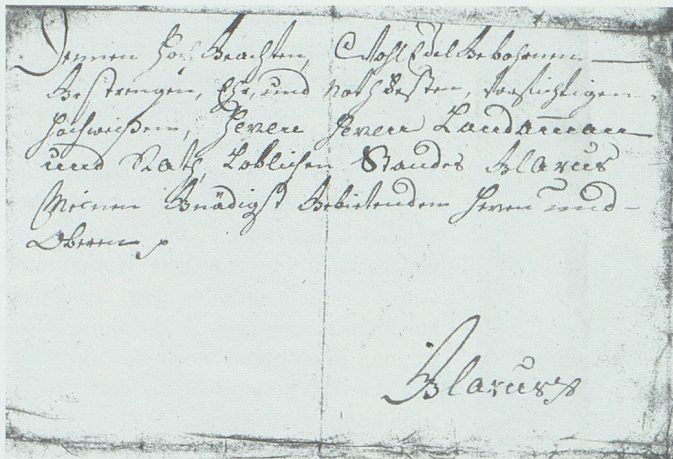 Dennen Hoch Geachten, Wohl Edel Gebohrnen
Gestrengen, Ehr, und Noth Vesten, Vorsichtigen
Hochweisen, Heren Heren Landamman
und Rath Loblichen Standes Glarus
Meinen Gnädigst Gebietenden Heren und
Oberen
Glarus